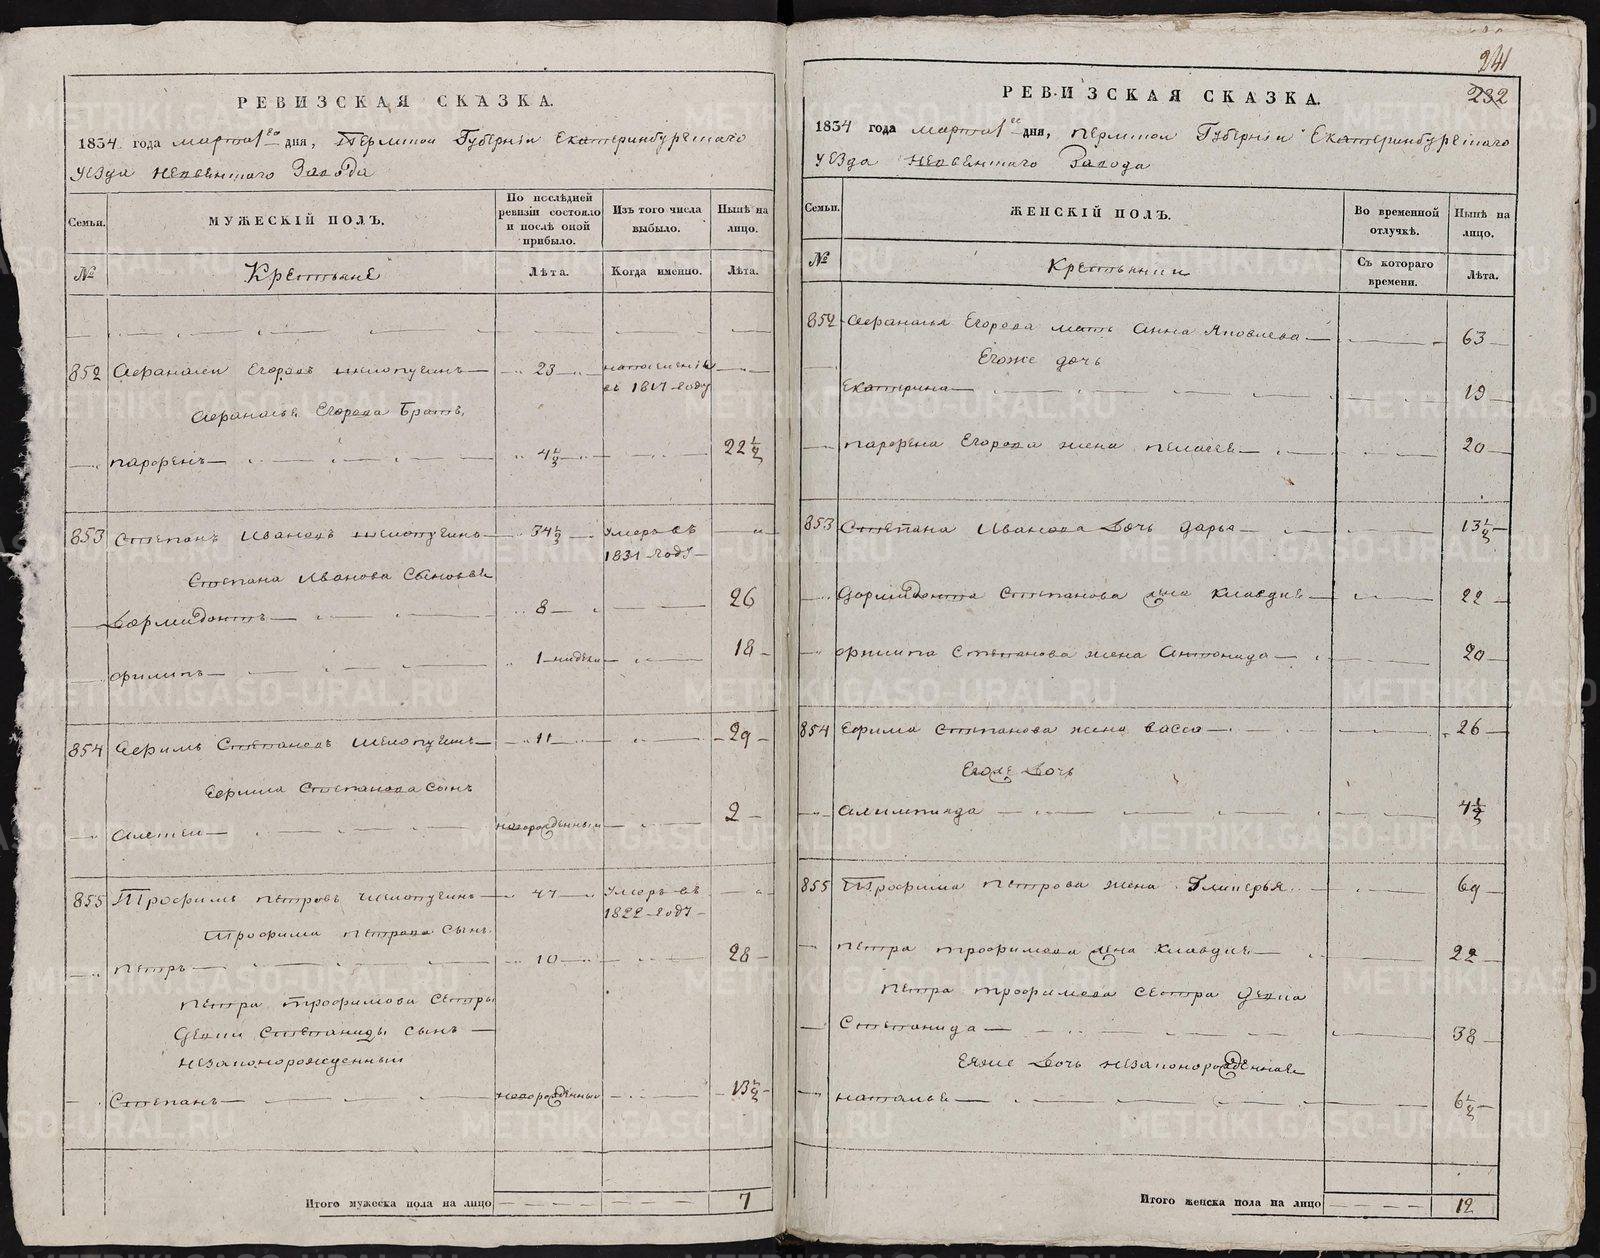 РЕВИЗСКАЯ СКАЗКА.
1834 года марта 1го дня, Пермской Губерніи Екатеринбургскаго
уѣзда Невьянскаго Завода
Семьи.
МУЖЕСКІЙ ПОЛЪ.
По послѣдней ревизіи состояло и послѣ оной прибыло.
Изъ того числа выбыло.
Нынѣ на лицо.
№
Крестьяне
Лѣта.
Когда именно.
Лѣта.
852 Афанасей Егоровъ 23 в 1817 году
Афанасья Егорова братъ
Парфенъ 4½ 22½
853 Степанъ Ивановъ 34½ умеръ въ 1831 году
Степана Иванова сыновья
Дормидонтъ 8 26
Филипъ 1 недели 18
854 Ефимъ Степановъ 11 29
Ефима Степанова сынъ
Алексей новорожденный 2
855 Трофимъ Петровъ 47 умеръ въ 1822 году
Трофима Петрова сынъ
Петръ 10 28
Петра Трофимова сестры
девки Степаниды сынъ
незаконорожденный
Степанъ новорожденный 13½
Итого мужеска пола на лицо 7
241
232
РЕВИЗСКАЯ СКАЗКА.
1834 года марта 1го дня, Пермской Губерніи Екатеринбургскаго
уѣзда Невьянскаго Завода
Семьи.
ЖЕНСКІЙ ПОЛЪ.
Во временной отлучкѣ.
Нынѣ на лицо.
№
Крестьянки
Съ котораго времени.
Лѣта.
852 Афанасья Егорова мать Анна Яковлева 63
Егоже дочь
Екатерина 19
Парфена Егорова жена 20
853 Степана Иванова дочь Дарья 13½
Дормидонта Степанова жена Клавдия 22
Филипа Степанова жена Антонида 20
854 Ефима Степанова жена Васса 26
Егоже дочь
Алимпиада 4½
855 Трофима Петрова жена Гликерья 69
Петра Трофимова жена Клавдия 22
Петра Трофимова сестра девка
Степанида 38
Ея же дочь незаконорожденная
Наталья 6½
Итого женска пола на лицо 12
METRIKI.GASO-URAL.RU